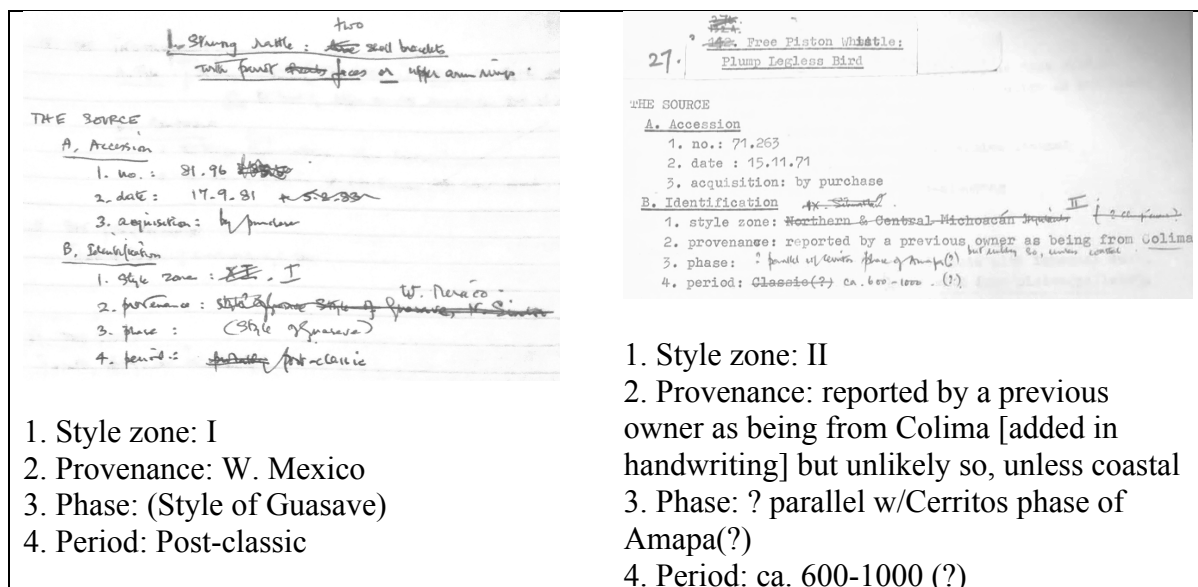 two
1. Strung rattle: shell bracelets
with faces or upper arm rings.
THE SOURCE
A. Accession
1. no.: 81.96
2. date: 17-9-81
3. acquisition: by purchase
B. Identification
1. Style zone: XI. I
W. Mexico
2. provenance:
3. phase: (Style of Guasave)
4. period: post-classic
1. Style zone: I
2. Provenance: W. Mexico
3. Phase: (Style of Guasave)
4. Period: Post-classic
27. Free Piston Whistle:
Plump Legless Bird
THE SOURCE
A. Accession
1. no.: 71.263
2. date : 15.11.71
3. acquisition: by purchase
B. Identification
1. style zone: Northern & Central Michoacán II
2. provenance: reported by a previous owner as being from Colima
but unlikely so, unless coastal
3. phase: ? parallel w/Cerritos phase of Amapa(?)
4. period: Classic(?) ca. 600-1000 (?)
1. Style zone: II
2. Provenance: reported by a previous
owner as being from Colima [added in
handwriting] but unlikely so, unless coastal
3. Phase: ? parallel w/Cerritos phase of
Amapa(?)
4. Period: ca. 600-1000 (?)